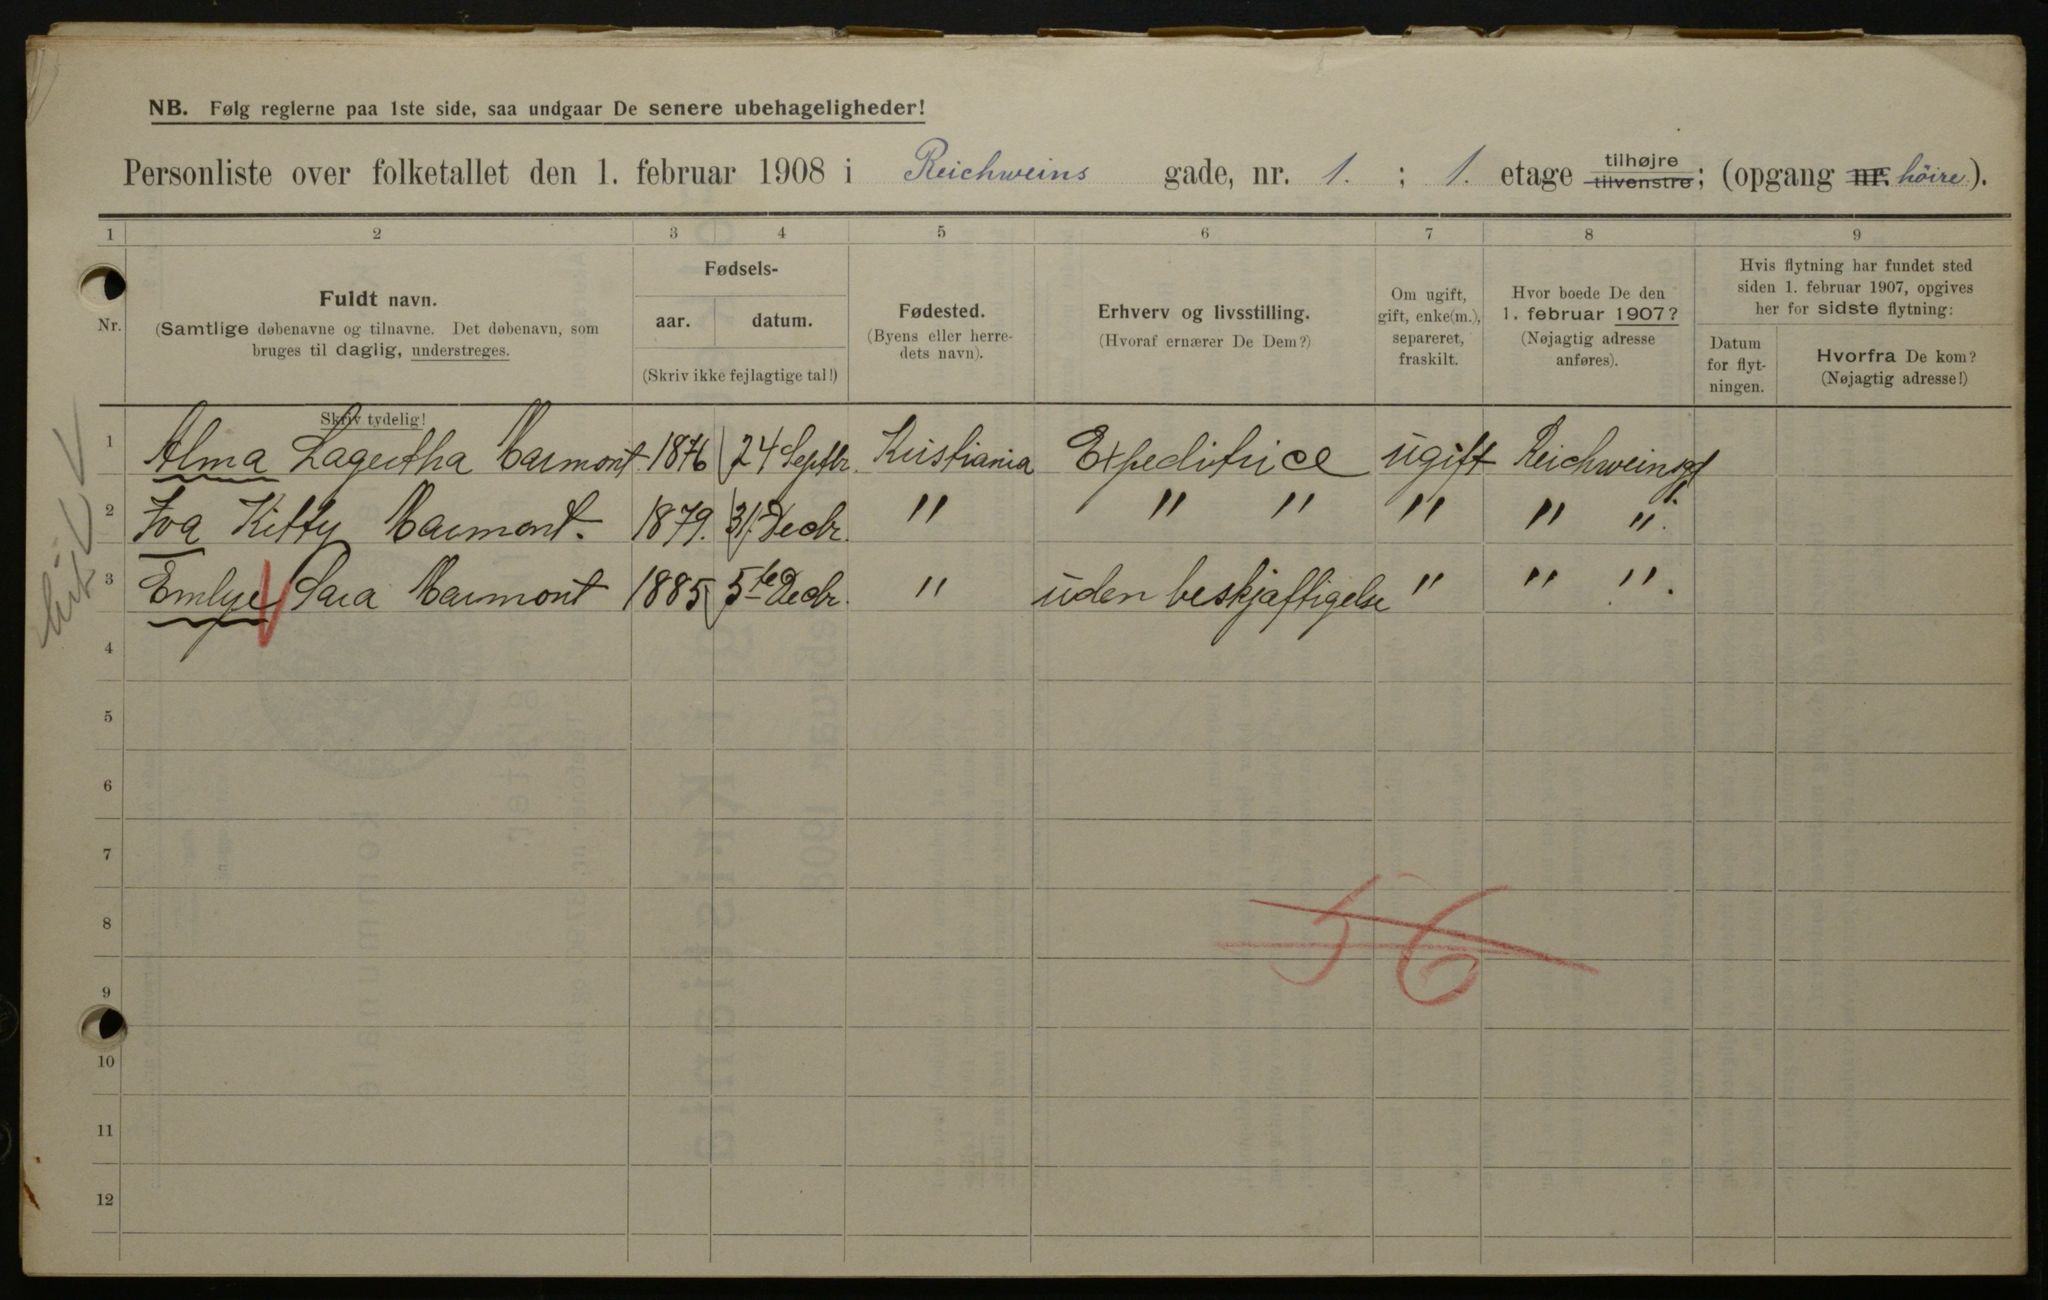 NB. Følg reglerne paa 1ste side, saa undgaar De senere ubehageligheder!
Personliste over folketallet den 1. februar 1908 i Reichweins gade, nr. 1. ; 1. etage tilhøjre tilvenstre; (opgang nr. höire).
1 2 3 4 5 6 7 8 9
Nr.
Fuldt navn.
(Samtlige døbenavne og tilnavne. Det døbenavn, som
bruges til daglig, understreges.
Skriv tydelig!
Fødsels-
aar. datum.
(Skriv ikke fejlagtige tal!)
Fødested.
(Byens eller herre-
dets navn).
Erhverv og livsstilling.
(Hvoraf ernærer De Dem?)
Om ugift,
gift, enke(m.),
separeret,
fraskilt.
Hvor boede De den
1. februar 1907?
(Nøjagtig adresse
anføres).
Hvis flytning har fundet sted
siden 1. februar 1907, opgives
her for sidste flytning:
Datum
for flyt-
ningen.
Hvorfra De kom?
(Nøjagtig adresse!)
1 Alma Lagertha Marmont 1876 24 Septbr. Kristiania Expeditrice ugift Reichweinsgt 1.
2 Iva Kitty Marmont. 1879. 31. Decbr. " " " " " "
3 Emlye Sara Marmont 1885 5te Decbr. " uden beskjæftigelse " " "
4
5
6
7
8
9
10
11
12
56